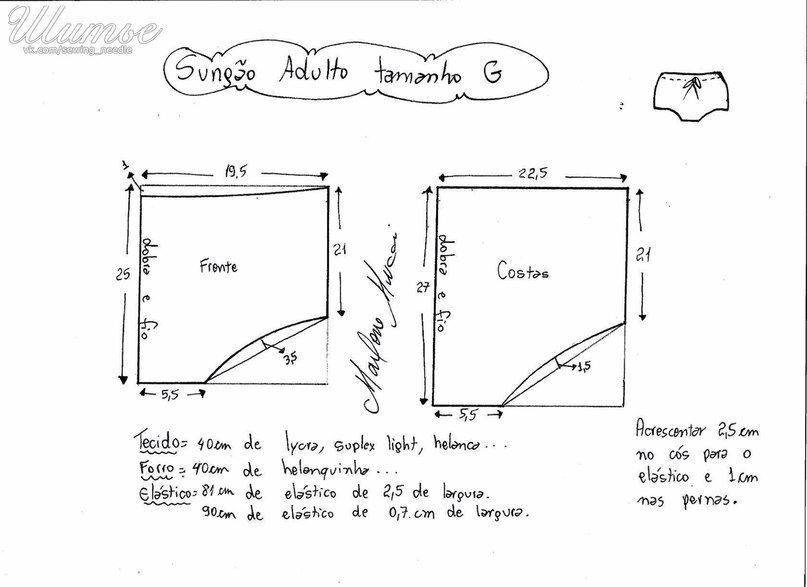 Шитье
vk.com/sewing_needle
Sungão Adulto tamanho G
1
19,5
25
dobra e fio
Frente
21
3,5
5,5
22,5
27
dobra e fio
Costas
21
1,5
5,5
Tecido = 40cm de lycra, suplex light, helanca...
Forro = 40cm de helanquinha...
Elástico = 81cm de elástico de 2,5 de largura.
90cm de elástico de 0,7cm de largura.
Acrescentar 2,5cm
no cós para o
elástico e 1cm
nas pernas.